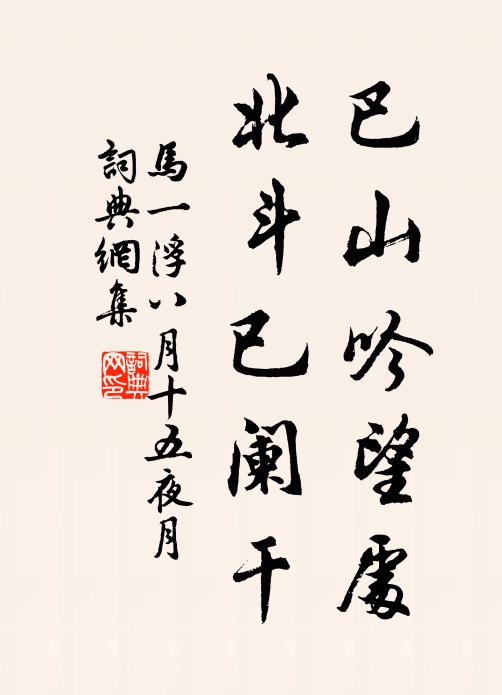 巴山吟望處
北斗已阑干
馬一浮八月十五夜月
詞典網集
詞典網印